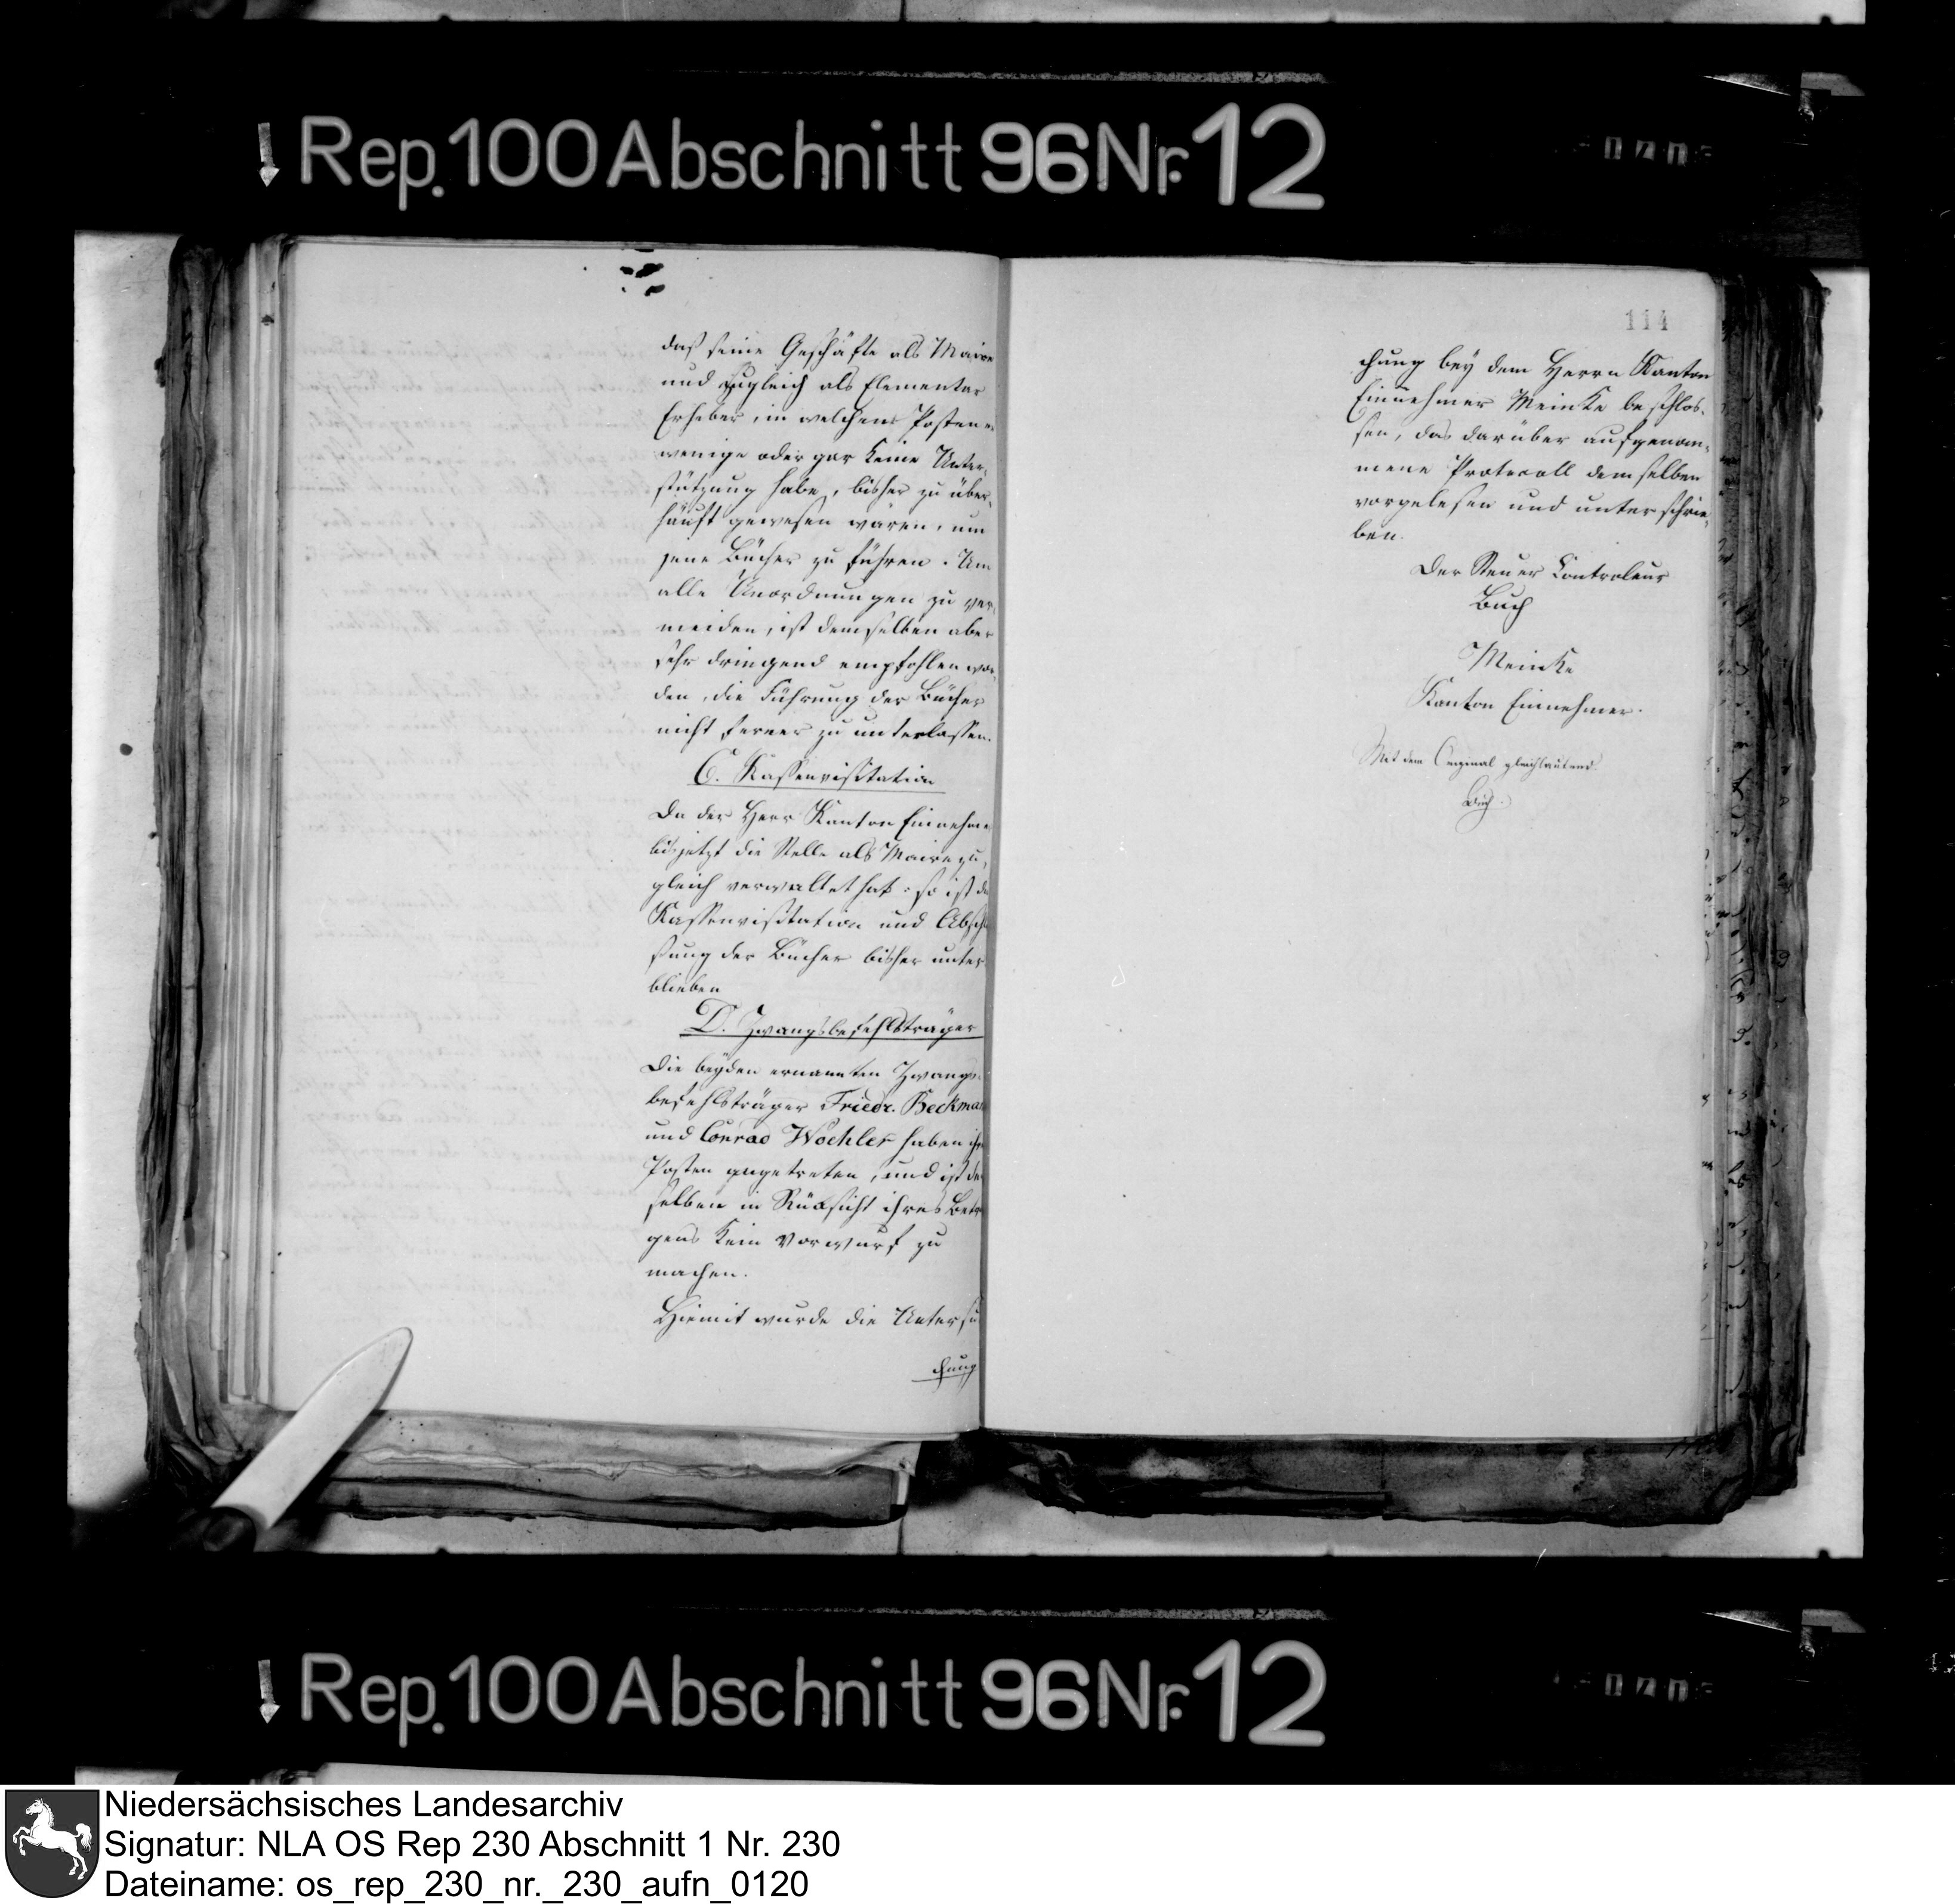 Rep. 100 Abschnitt 96 Nr. 12
daß seine Geschäfte als Maire
und zugleich als Elementar
Erheber, in welchem Posten er
wenige oder gar keine Unter-
stützung habe, bisher zu über-
häuft gewesen wären, um
jene Bücher zu führen. Um
alle Unordnungen zu ver-
meiden, ist demselben aber
sehr dringend empfohlen wor-
den, die Führung der Bücher
nicht ferner zu unterlassen.
C. Kassenvisitation
Da der Herr Kanton Einnehmer
bis jetzt die Stelle als Maire zu-
gleich verwaltet hat: so ist die
Kassenvisitation und Abschlie-
ßung der Bücher bisher unter
blieben
D. Zwangsbefehlsträger
Die beyden ernannten Zwangs-
befehlsträger Friedr. Beckmann
und Conrad Woehler haben ihre
Posten angetreten, und ist den
selben in Rücksicht ihres Betra
gens kein Vorwurf zu
machen.
Hiemit wurde die Untersu
chung
114
chung bey dem Herrn Kanton
Einnehmer Meinke beschlos-
sen, das darüber aufgenom-
mene Protocoll demselben
vorgelesen und unterschrie-
ben.
Der Steuer Controleur
Buch
Meinke
Kanton Einnehmer.
Mit dem Original gleichlautend
Buch.
Rep. 100 Abschnitt 96 Nr. 12
Niedersächsisches Landesarchiv
Signatur: NLA OS Rep 230 Abschnitt 1 Nr. 230
Dateiname: os_rep_230_nr._230_aufn_0120